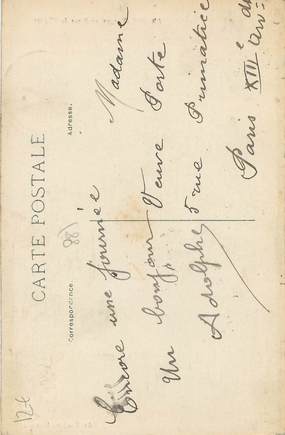 CARTE POSTALE
Correspondance.
Adresse.
88
Encore une journée
Un bonjour
Adolphe
Madame
Veuve Porte
5 rue Primatice
Paris XIIIe arr.
12€